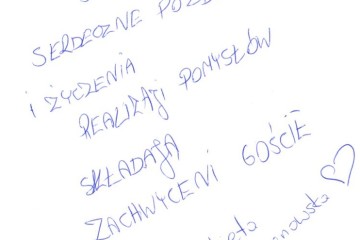 SERDECZNE
I ŻYCZENIA
REALIZACJI POMYSŁÓW
SKŁADAJĄ
ZACHWYCENI GOŚCIE